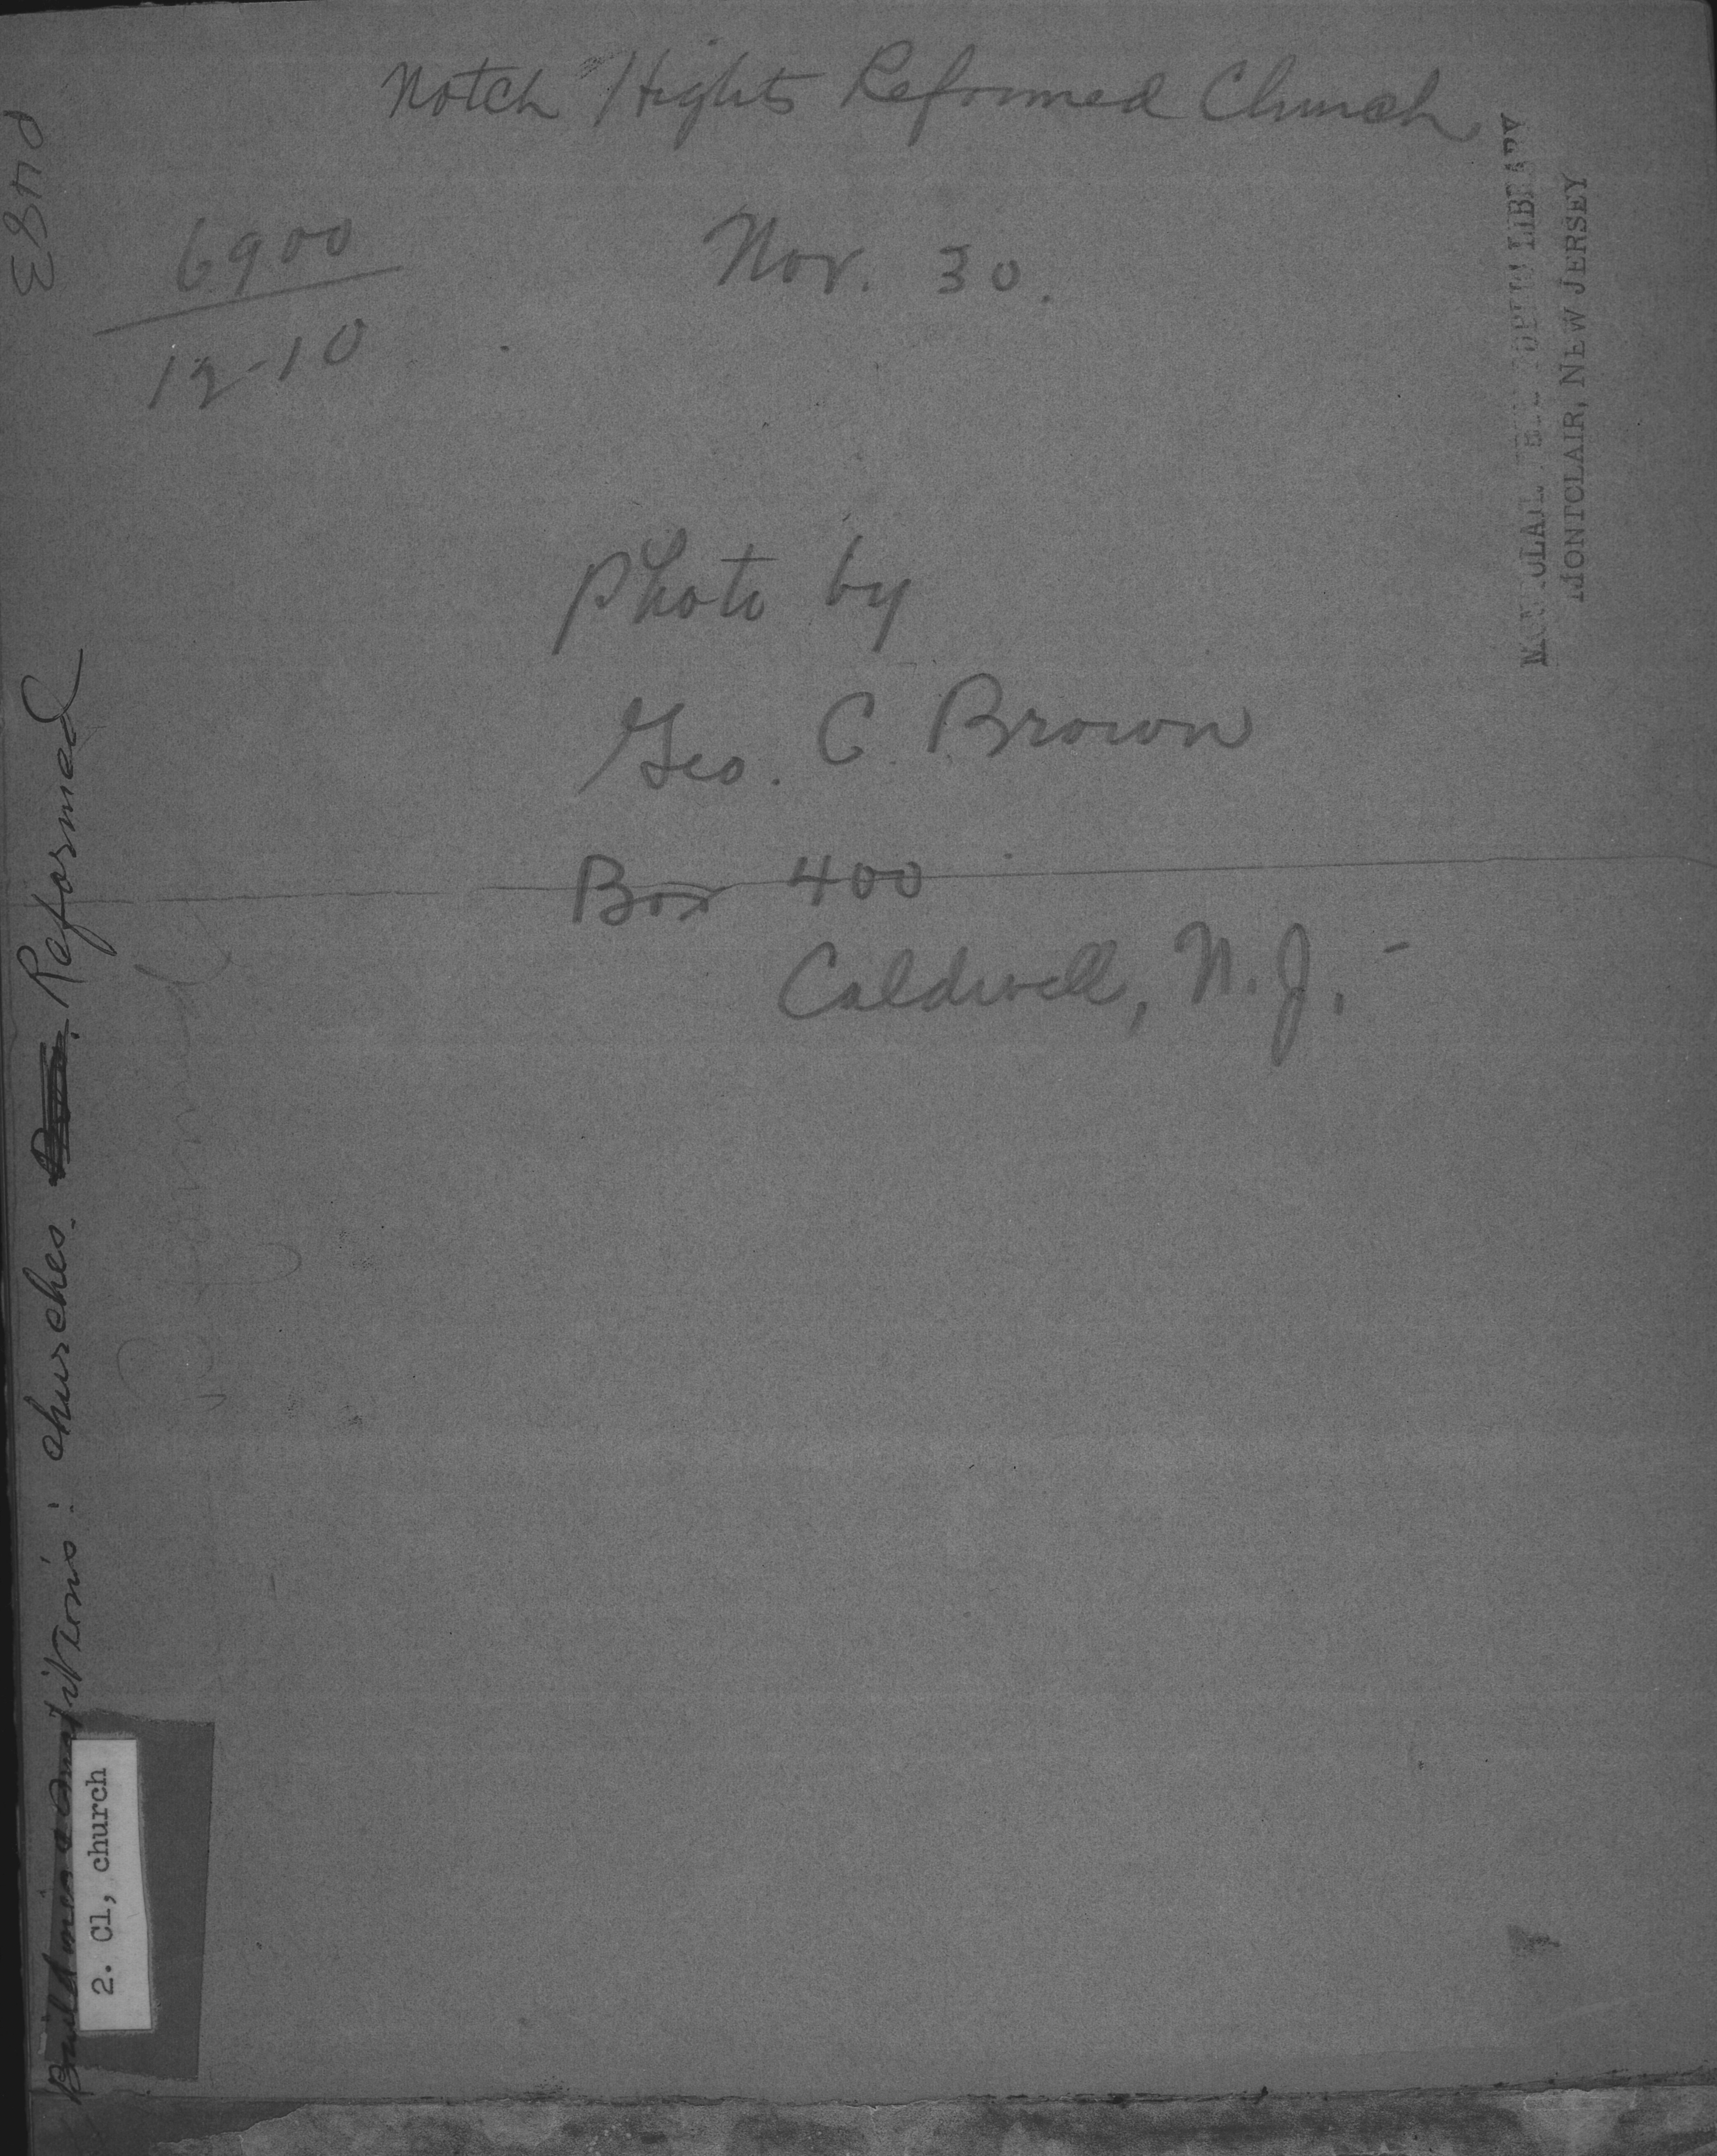 Notch Hights Reformed Church
6900
12-10
Nov. 30.
Photo by
Geo. C. Brown
Box 400
Caldwell, N.J. -
LIBRARY
MONTCLAIR, NEW JERSEY
churches. Reformed
Reformed
2. Cl, church